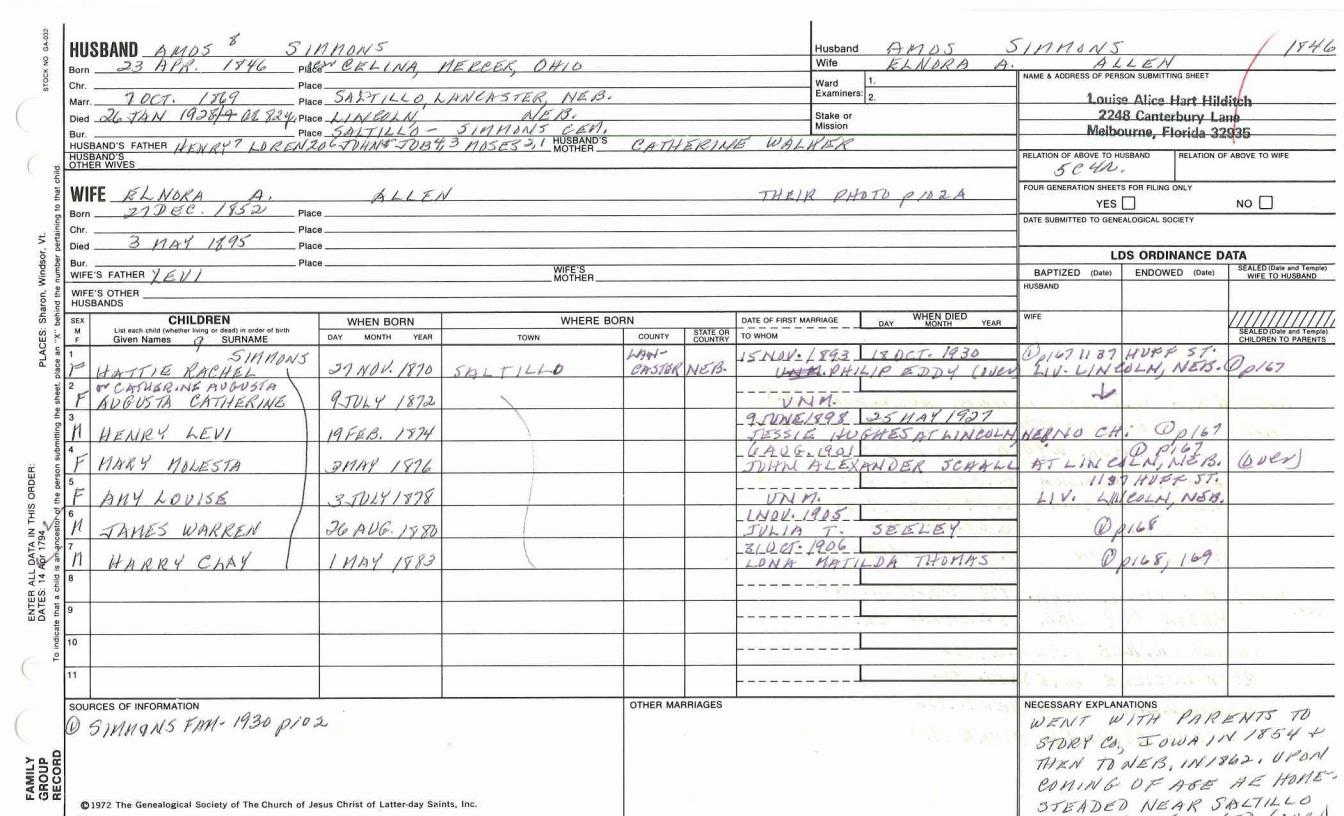 STOCK NO. GA-032
HUSBAND AMOS 8 SIMMONS
Born 23 APR. 1846 Place CELINA, MERCER, OHIO
Chr. Place
Marr. 7 OCT. 1869 Place SALTILLO, LANCASTER, NEB.
Died 26 JAN 1928/9 OR 824, Place LINCOLN, NEB.
Bur. Place SALTILLO - SIMMONS CEM.
HUSBAND'S FATHER HENRY 7 LOREN 206 JOHN 5 JOB 4,3 MOSES 2,1 HUSBAND'S MOTHER CATHERINE WALKER
HUSBAND'S OTHER WIVES
WIFE ELNORA A. ALLEN THEIR PHOTO p102A
Born 27 DEC. 1852 Place
Chr. Place
Died 3 MAY 1895 Place
Bur. Place
WIFE'S FATHER LEVI WIFE'S MOTHER
WIFE'S OTHER HUSBANDS
Husband AMOS SIMMONS 1846
Wife ELNORA A. ALLEN
Ward Examiners: 1.
2.
Stake or Mission
NAME & ADDRESS OF PERSON SUBMITTING SHEET
Louise Alice Hart Hilditch
2248 Canterbury Lane
Melbourne, Florida 32935
RELATION OF ABOVE TO HUSBAND RELATION OF ABOVE TO WIFE
5C4R.
FOUR GENERATION SHEETS FOR FILING ONLY
YES NO
DATE SUBMITTED TO GENEALOGICAL SOCIETY
LDS ORDINANCE DATA
BAPTIZED (Date) ENDOWED (Date) SEALED (Date and Temple) WIFE TO HUSBAND
HUSBAND
WIFE
SEALED (Date and Temple) CHILDREN TO PARENTS
SEX M F CHILDREN WHEN BORN WHERE BORN DATE OF FIRST MARRIAGE WHEN DIED
List each child (whether living or dead) in order of birth
Given Names 9 SURNAME DAY MONTH YEAR TOWN COUNTY STATE OR COUNTRY TO WHOM DAY MONTH YEAR
1 SIMMONS LAN- 15 NOV. 1893 18 OCT. 1930 ① p167 1137 HUFF ST.
F HATTIE RACHEL 27 NOV. 1870 SALTILLO CASTER NEB. PHILIP EDDY (over) LIV. LINCOLN, NEB. ① p167
2 or CATHERINE AUGUSTA
F AUGUSTA CATHERINE 9 JULY 1872 UNM.
3 9 JUNE 1898 25 MAY 1927
M HENRY LEVI 19 FEB. 1874 JESSIE HUGHES AT LINCOLN, NEB NO CH: ① p167
4 6 AUG. 1901 ① p167
F MARY MOLESTA 2 MAY 1876 JOHN ALEXANDER SCHALL AT LINCOLN, NEB. (over)
5 1137 HUFF ST.
F AMY LOUISE 3 JULY 1878 UNM. LIV. LINCOLN, NEB.
6 1 NOV. 1905
M JAMES WARREN 26 AUG. 1880 JULIA T. SEELEY ① p168
7 31 OCT. 1906
M HARRY CLAY 1 MAY 1883 LONA MATILDA THOMAS ① p168, 169
8
9
10
11
SOURCES OF INFORMATION
① SIMMONS FAM- 1930 p102
OTHER MARRIAGES
NECESSARY EXPLANATIONS
WENT WITH PARENTS TO
STORY CO., IOWA IN 1854 +
THEN TO NEB. IN 1862. UPON
COMING OF AGE HE HOME-
STEADED NEAR SALTILLO
©1972 The Genealogical Society of The Church of Jesus Christ of Latter-day Saints, Inc.
FAMILY GROUP RECORD
ENTER ALL DATA IN THIS ORDER:
DATES: 14 Apr 1794
PLACES: Sharon, Windsor, Vt.
To indicate that a child is an ancestor of the person submitting the sheet, place an "X" behind the number pertaining to that child.